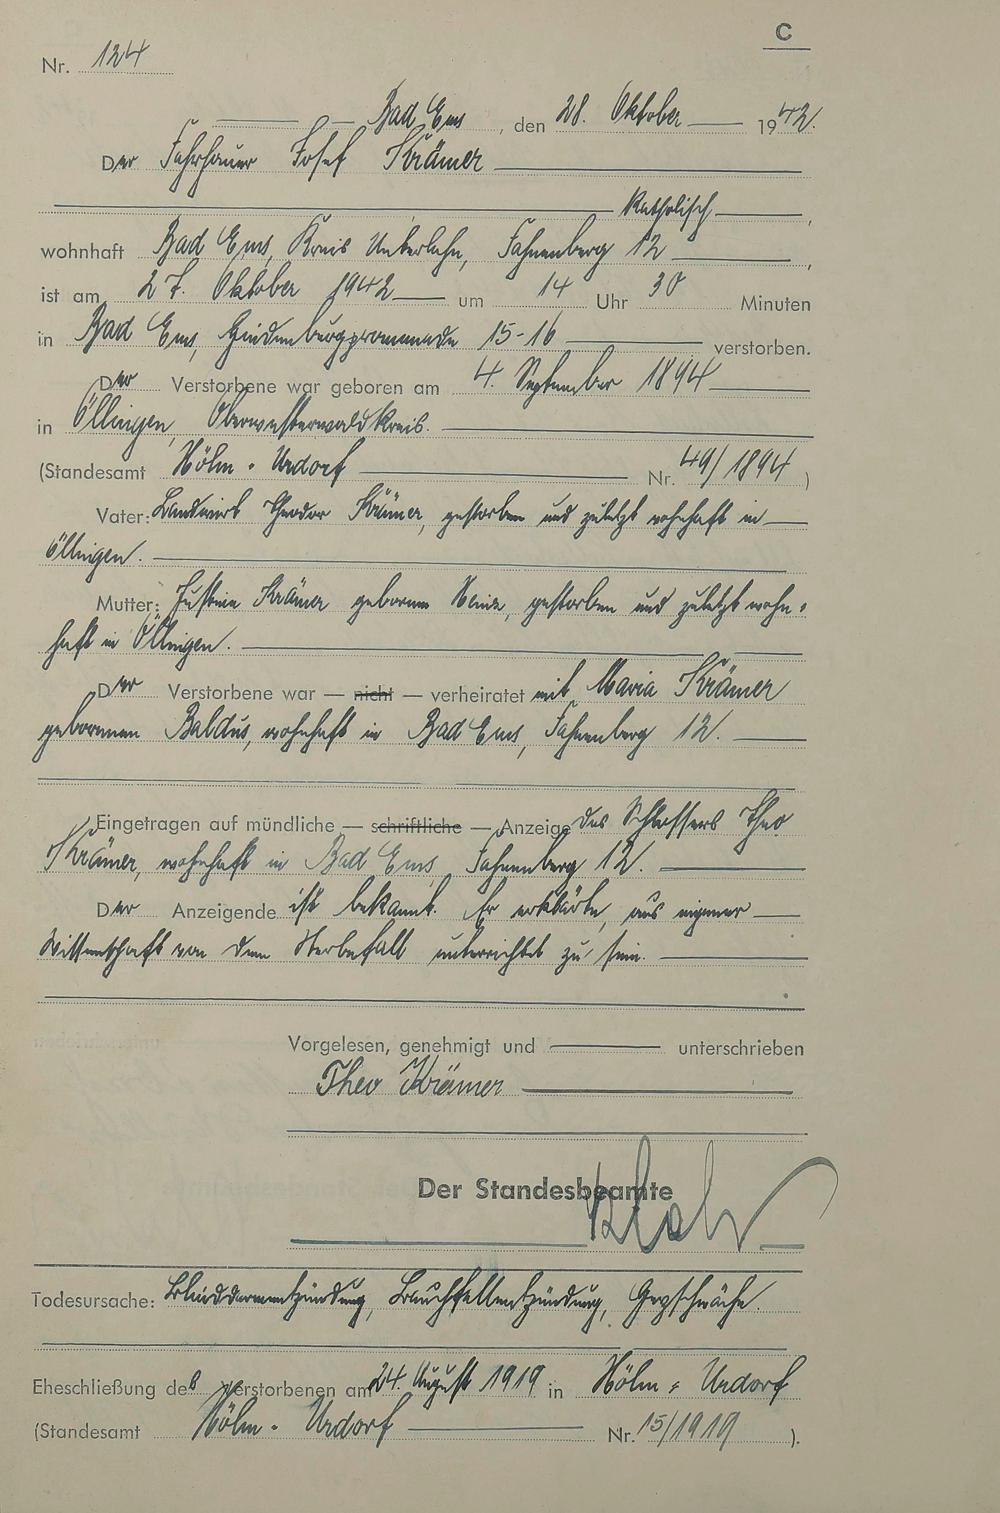 C
Nr. 124
Bad Ems, den 28. Oktober 1942.
Der Fahrhauer Josef Krämer
katholisch,
wohnhaft Bad Ems, Kreis Unterlahn, Fahnenberg 12,
ist am 27. Oktober 1942 um 14 Uhr 30 Minuten
in Bad Ems, Hindenburgpromenade 15-16 verstorben.
Der Verstorbene war geboren am 4. September 1894
in Öllingen, Oberwesterwaldkreis.
(Standesamt Höhn-Urdorf Nr. 49/1894)
Vater: Landwirt Theodor Krämer, gestorben und zuletzt wohnhaft in
Öllingen.
Mutter: Justina Krämer geborene, gestorben und zuletzt wohn-
haft in Öllingen.
Der Verstorbene war — nicht — verheiratet mit Maria Krämer
geborenen Baldus, wohnhaft in Bad Ems, Fahnenberg 12.
Eingetragen auf mündliche — schriftliche — Anzeige des Schlossers Theo
Krämer, wohnhaft in Bad Ems, Fahnenberg 12.
Der Anzeigende ist bekannt. Er erklärte, aus eigener
Wissenschaft von dem Sterbefall unterrichtet zu sein.
Vorgelesen, genehmigt und unterschrieben
Theo Krämer
Der Standesbeamte
Todesursache: Blinddarmentzündung, Bauchfellentzündung, Herzschwäche.
Eheschließung des Verstorbenen am 24. August 1919 in Höhn-Urdorf
(Standesamt Höhn-Urdorf Nr. 15/1919).